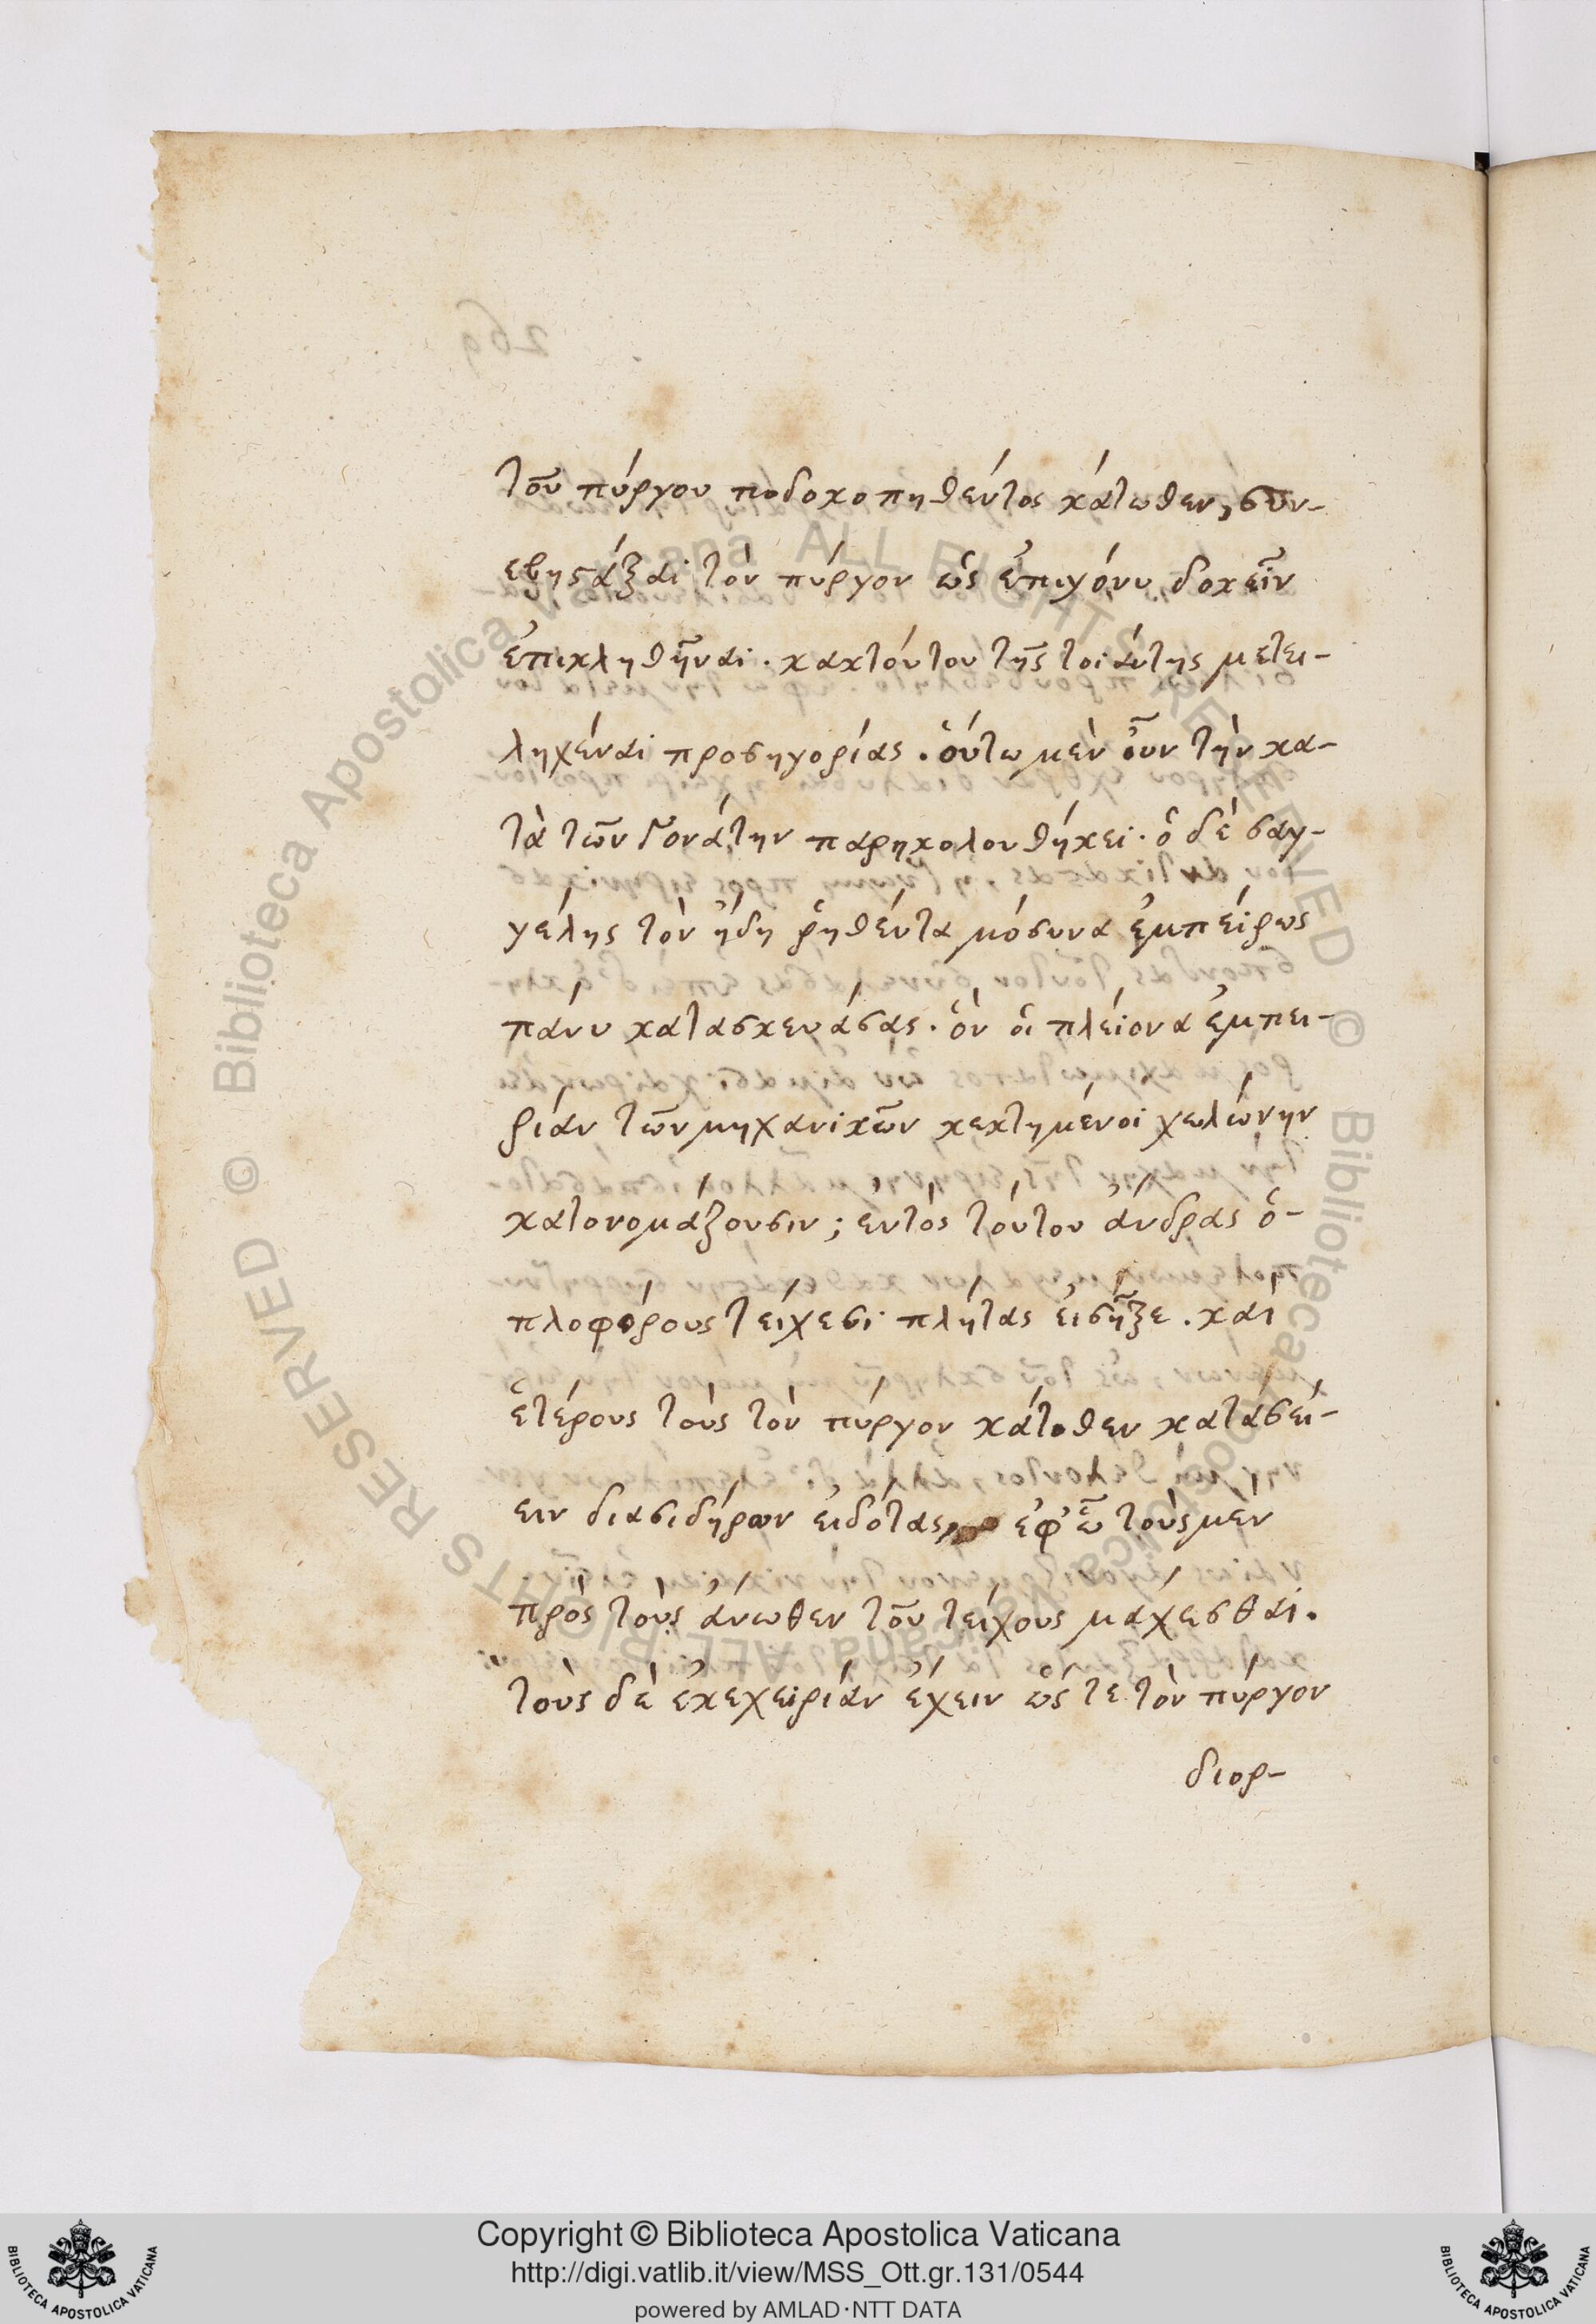 τοῦ πύργου ποδοκοπηθέντος κάτωθεν, συν-
εβη ϛάξαι τὸν πύργον ὡς ἐπιγόνυ δοκεῖν
ἐπικληθῆναι. κακτούτου τῆς τοιάυτης μετει-
ληχέναι προσηγορίας. ὁύτω μὲν ὖυν τὴν κα-
τὰ τῶν Γονάτην παρηκολουθήκει. ὁ δὲ σαγ-
γέλης τὸν ἤδη ῥηθέντα μόσυνα ἐμπέιρως
πάνυ κατασκευάσας. ὁν ὁι πλέιονα ἐμπει-
ρίαν τῶν μηχανικῶν κεκτημένοι χελώνην
κατονομάζουσιν; εντὸς τούτου ἄνδρας ὁ-
πλοφόρους τείχεσι πλήτας ἐισῆξε. και
ἑτέρους τοὺς τὸν πύργον κάτοθεν κατασέι-
ειν διασιδήρων ἐιδότας, ἐφ' ῶ τοὺς μὲν
πρὸς τοὺς ἄνωθεν τοῦ τείχους μάχεσθαι.
τοὺς δὲ ἐκεχειρίαν ἔχειν ὥς τε τὸν πύργον
διορ-
269
Copyright © Biblioteca Apostolica Vaticana
http://digi.vatlib.it/view/MSS_Ott.gr.131/0544
powered by AMLAD·NTT DATA
BIBLIOTECA APOSTOLICA VATICANA
BIBLIOTECA APOSTOLICA VATICANA
© Biblioteca Apostolica Vaticana ALL RIGHTS RESERVED
© Biblioteca Apostolica Vaticana ALL RIGHTS RESERVED